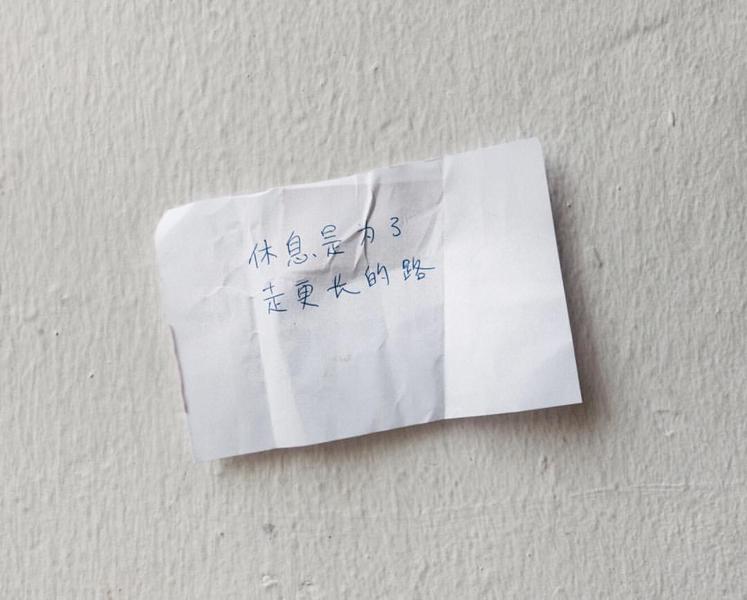 休息是为了
走更长的路